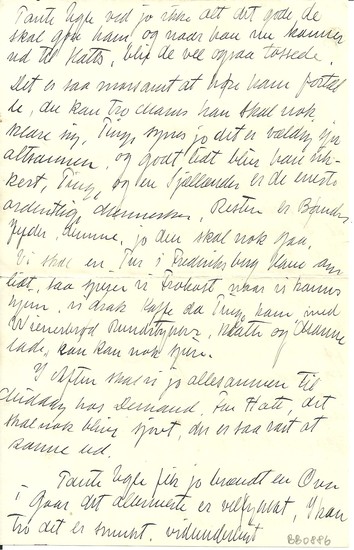 Tante Ugle ved jo ikke alt det gode, de
skal gøre ham, og naar han nu kommer
ud til Hatts, blir de vel ogsaa tossede.
Det er saa morsomt at høre ham fortæl-
le, du kan tro drams han skal nok
klare sig, Ting, synes jo det er vældig sjov
altsammen, og godt lidt blir han sik-
kert, Ting, og en Sjællænder er de eneste
ordentlige Mennesker, Resten er Bønder,
Jyder, jo den skal nok gaa.
Vi skal en Tur i Frederiksberg Have om
lidt, saa spiser vi Frokost naar vi kommer
hjem, vi drak Kaffe da Ting kom, med
Wienerbrød Rundstykker, og
lade, kan kan nok spise.
I Aften skal vi jo allesammen til
Middag hos Fru Hatt, det
skal nok blive sjovt, der er saa rart at
komme ud.
Tante Ugle fik jo brændt en Ovn
i Gaar, det allermeste er vellykket, I kan
tro det er smukt, vidunderligt
BB0886